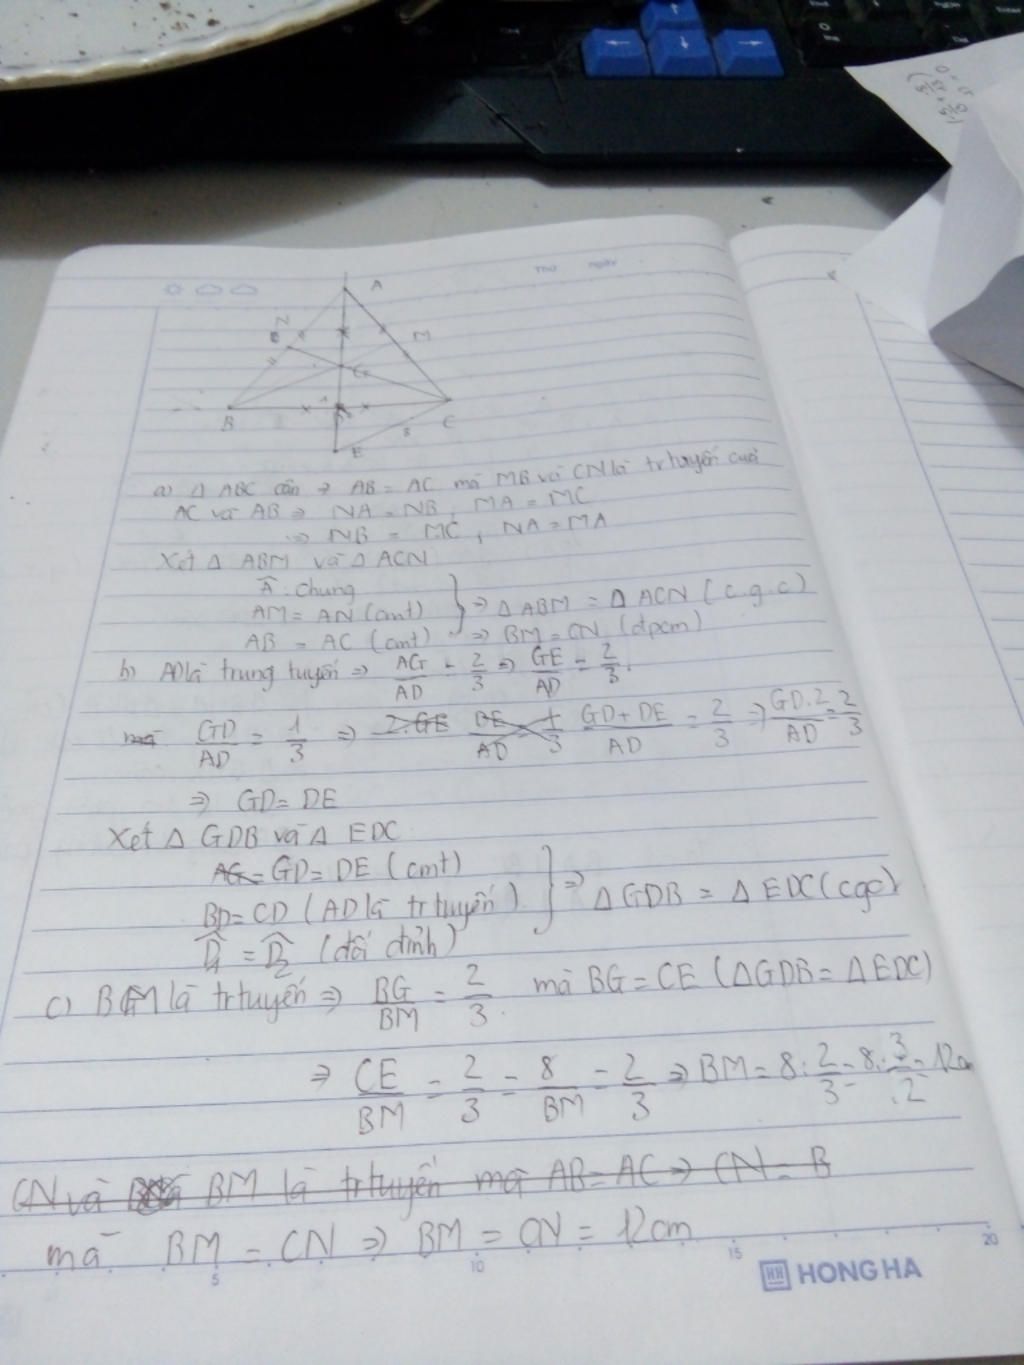 A
N
M
G
B
C
8
E
a) Δ ABC cân ⇒ AB = AC mà MB và CN là tr tuyến của
AC và AB ⇒ NA = NB, MA = MC
⇒ NB = MC, NA = MA
Xét Δ ABM và Δ ACN
Â: chung
AM = AN (cmt) } ⇒ Δ ABM = Δ ACN (c.g.c)
AB = AC (cmt) ⇒ BM = CN (đpcm)
b) AD là trung tuyến ⇒ AG/AD = 2/3 ⇒ GE/AD = 2/3.
mà GD/AD = 1/3 ⇒ 2.GE DE/AD = 1/3 GD+DE/AD = 2/3 ⇒ GD.2/AD = 2/3
⇒ GD = DE
Xét Δ GDB và Δ EDC
AG = GD = DE (cmt)
BD = CD (AD là tr tuyến) } ⇒ Δ GDB = Δ EDC (cgc)
D̂1 = D̂2 (đối đỉnh)
c) BGM là tr tuyến ⇒ BG/BM = 2/3. mà BG = CE (ΔGDB = ΔEDC)
⇒ CE/BM = 2/3 = 8/BM = 2/3 ⇒ BM = 8 : 2/3 = 8 . 3/2 = 12cm
CN và BM là tr tuyến mà AB = AC ⇒ CN = B
mà BM = CN ⇒ BM = CN = 12cm
5 10 15 20
HH HONG HA